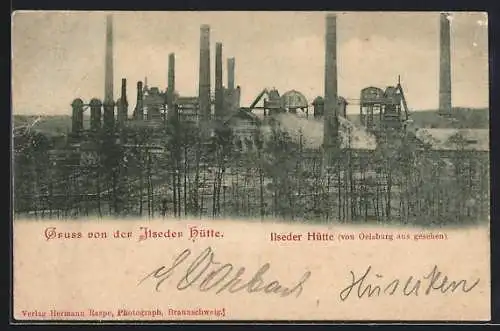 Gruss von der Ilseder Hütte.
Ilseder Hütte (von Oelsburg aus gesehen)
Verlag Hermann Raspe, Photograph, Braunschweig.